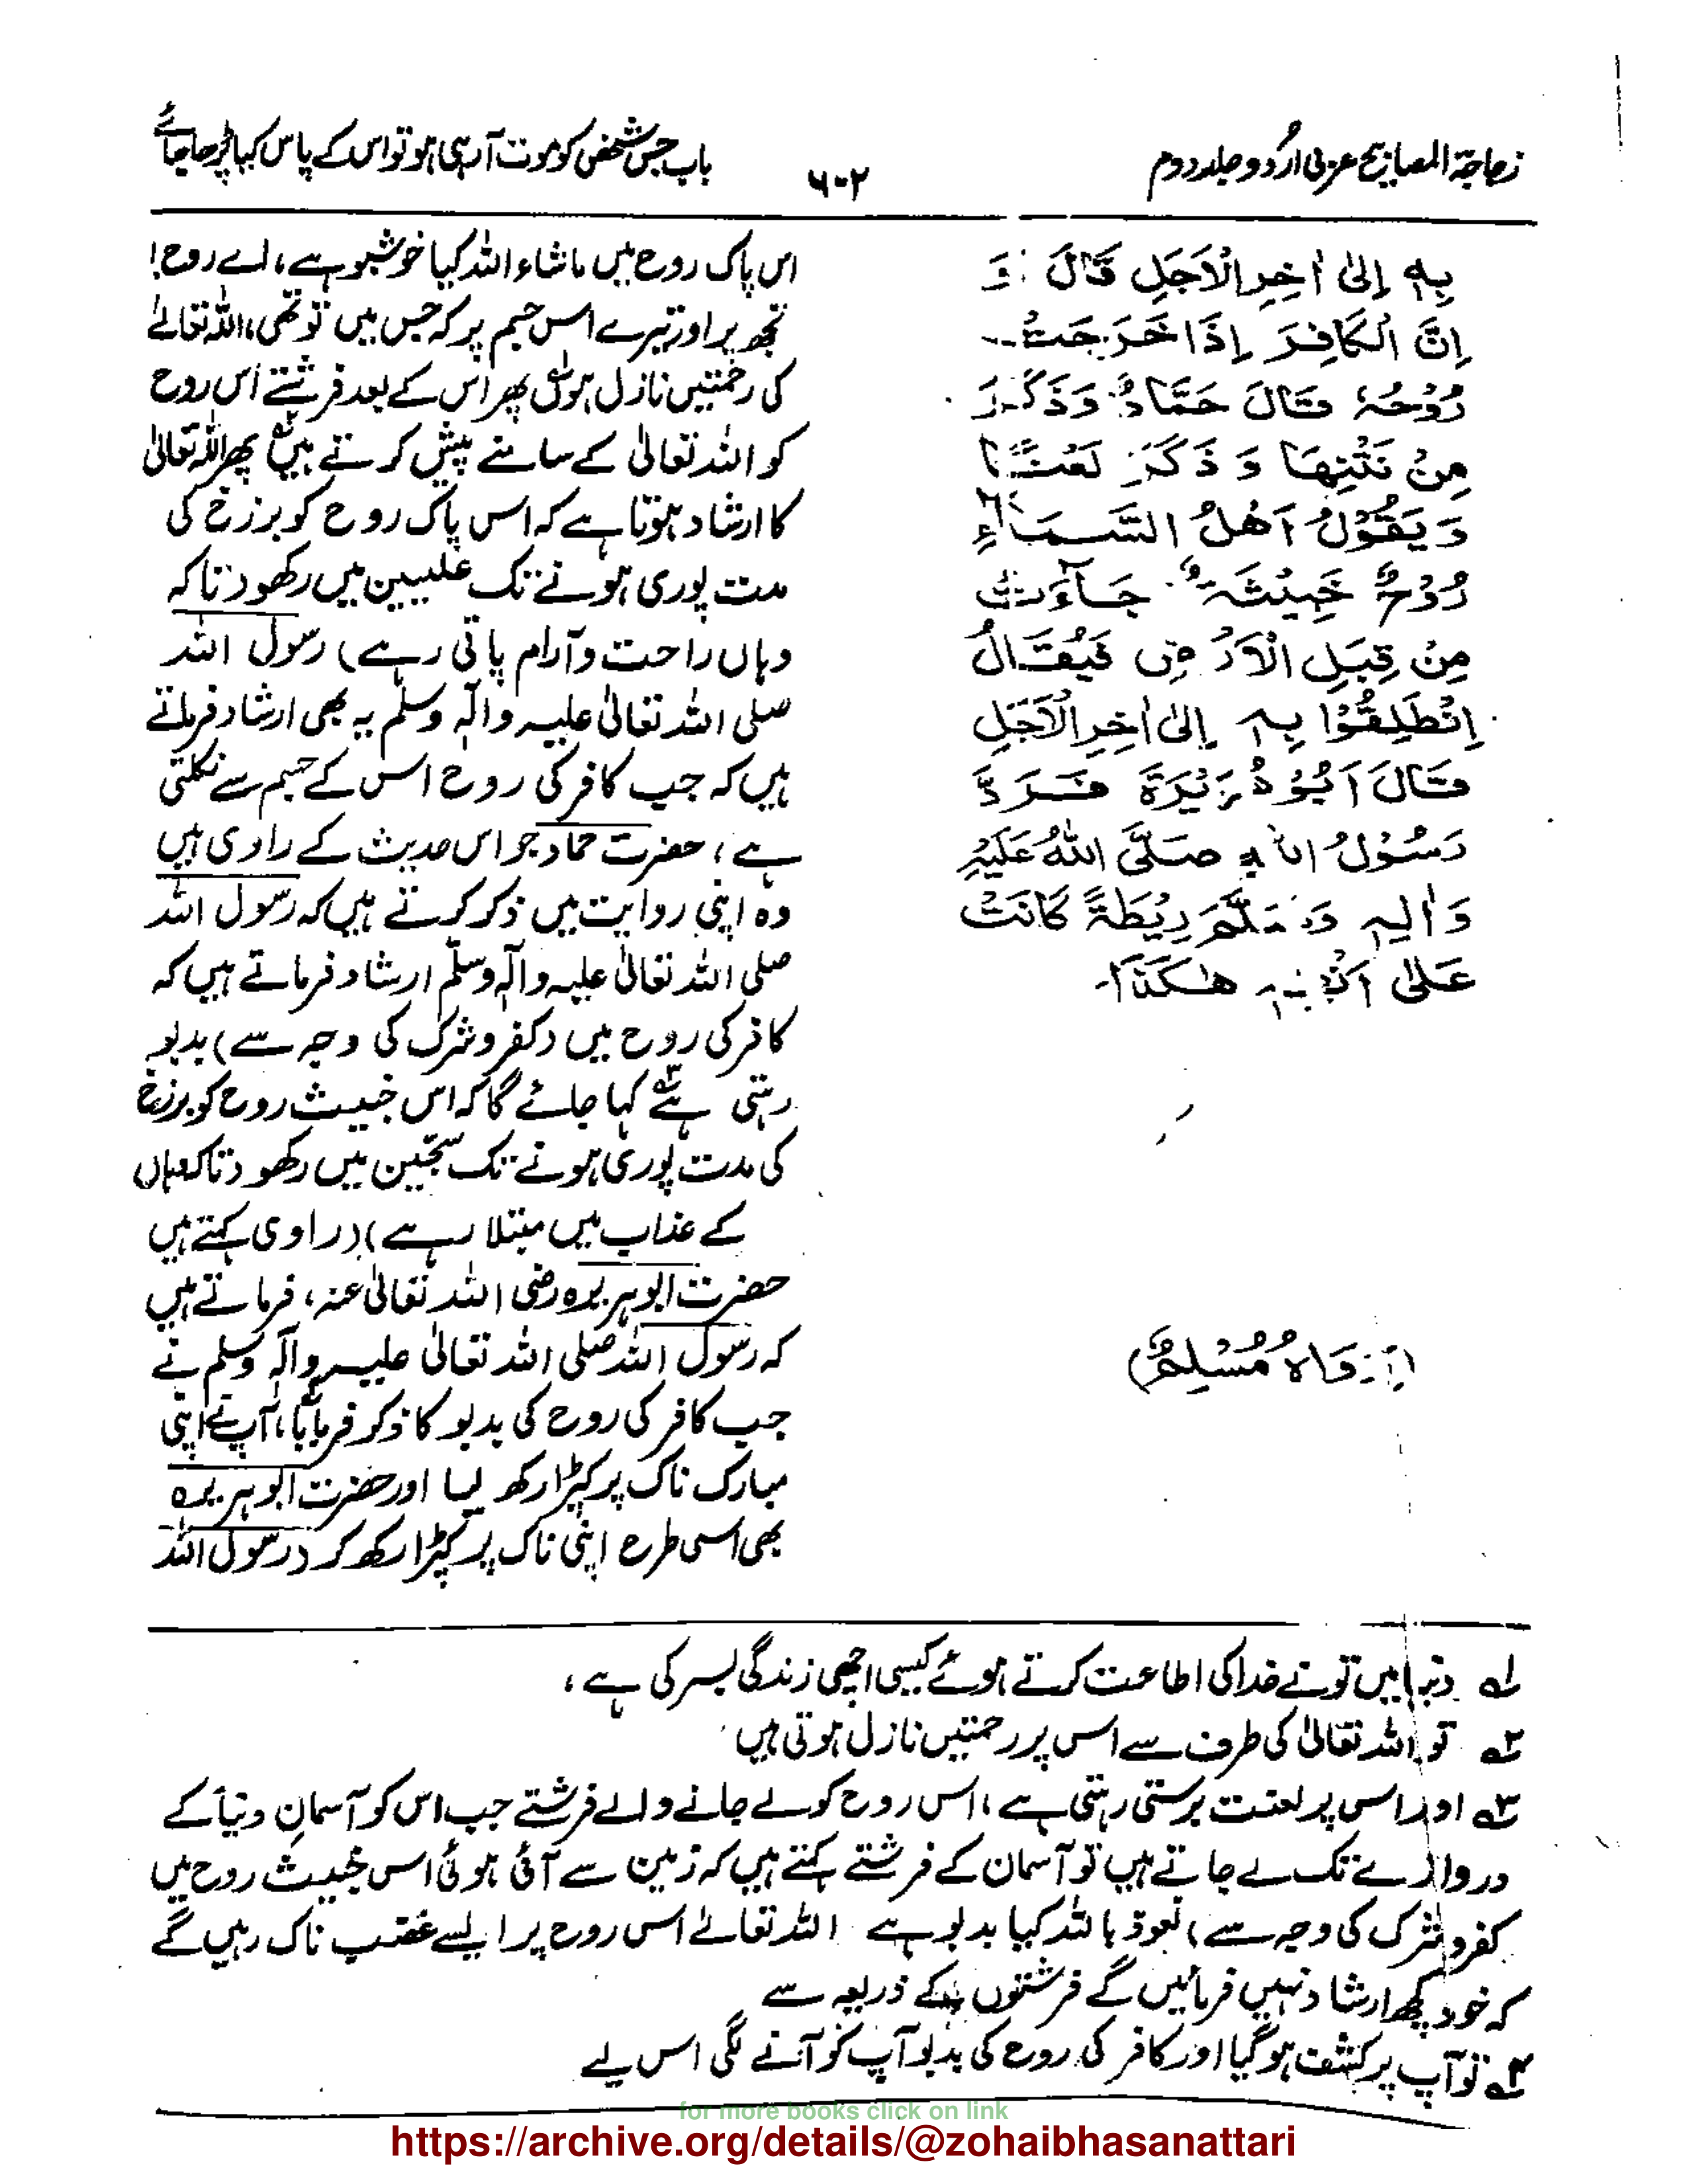 زجاجۃ المصابیح عربی اُردو جلد دوم
۶۰۲
باب جس شخص کو موت آرہی ہو تو اس کے پاس کیا پڑھا جائے
بِهٖ اِلٰى اٰخِرِ الْاَجَلِ قَالَ وَ
اِنَّ الْكَافِرَ اِذَا خَرَجَتْ
رُوْحُهٗ قَالَ حَمَّادٌ وَذَكَرَ
مِنْ نَتْنِهَا وَ ذَكَرَ لَعْنًا
وَيَقُوْلُ اَهْلُ السَّمَاءِ
رُوْحٌ خَبِيْثَةٌ جَآءَتْ
مِنْ قِبَلِ الْاَرْضِ فَيُقَالُ
اِنْطَلِقُوْا بِهٖ اِلٰى اٰخِرِ الْاَجَلِ
قَالَ اَبُوْ هُرَيْرَةَ فَرَدَّ
رَسُوْلُ اللهِ صَلَّى اللهُ عَلَيْهِ
وَاٰلِهٖ وَسَلَّمَ رِيْطَةً كَانَتْ
عَلٰى اَنْفِهٖ هٰكَذَا۔
(رَوَاهُ مُسْلِمٌ)
اس پاک روح میں ماشاء اللہ کیا خوشبو ہے، اے روح!
تجھ پر اور تیرے اس جسم پر کہ جس میں تو تھی، اللہ تعالےٰ
کی رحمتیں نازل ہوں پھر اس کے بعد فرشتے اس روح
کو اللہ تعالیٰ کے سامنے پیش کرتے ہیں پھر اللہ تعالیٰ
کا ارشاد ہوتا ہے کہ اس پاک روح کو برزخ کی
مدت پوری ہونے تک علیین میں رکھو (تاکہ
وہاں راحت و آرام پاتی رہے) رسول اللہ
صلی اللہ تعالیٰ علیہ واٰلہٖ وسلم یہ بھی ارشاد فرماتے
ہیں کہ جب کافر کی روح اس کے جسم سے نکلتی
ہے، حضرت حماد جو اس حدیث کے راوی ہیں
وہ اپنی روایت میں ذکر کرتے ہیں کہ رسول اللہ
صلی اللہ تعالیٰ علیہ واٰلہٖ وسلّم ارشاد فرماتے ہیں کہ
کافر کی روح میں (کفر و شرک کی وجہ سے) بدبو
رہتی ہے۳ کہا جائے گا کہ اس خبیث روح کو برزخ
کی مدت پوری ہونے تک سجّین میں رکھو (تاکہ وہاں
کے عذاب میں مبتلا رہے) (راوی کہتے ہیں
حضرت ابو ہریرہ رضی اللہ تعالیٰ عنہ، فرماتے ہیں
کہ رسول اللہ صلی اللہ تعالیٰ علیہ واٰلہٖ وسلم نے
جب کافر کی روح کی بدبو کا ذکر فرمایا۴، آپ نے اپنی
مبارک ناک پر کپڑا رکھ لیا اور حضرت ابو ہریرہ
بھی اسی طرح اپنی ناک پر کپڑا رکھ کر (رسول اللہ
۱ دنیا میں تو نے خدا کی اطاعت کرتے ہوئے کیسی اچھی زندگی بسر کی ہے،
۲ تو اللہ تعالیٰ کی طرف سے اس پر رحمتیں نازل ہوتی ہیں
۳ اور اس پر لعنت برستی رہتی ہے، اس روح کو لے جانے والے فرشتے جب اس کو آسمانِ دنیا کے
دروازے تک لے جاتے ہیں تو آسمان کے فرشتے کہتے ہیں کہ زمین سے آئی ہوئی اس خبیث روح میں
کفر و شرک کی وجہ سے) نعوذ باللہ کیا بدبو ہے اللہ تعالےٰ اس روح پر ایسے غضب ناک رہیں گے
کہ خود کچھ ارشاد نہیں فرمائیں گے فرشتوں کے ذریعہ سے
۴ تو آپ پر کشف ہو گیا اور کافر کی روح کی بدبو آپ کو آنے لگی اس لیے
for more books click on link
https://archive.org/details/@zohaibhasanattari